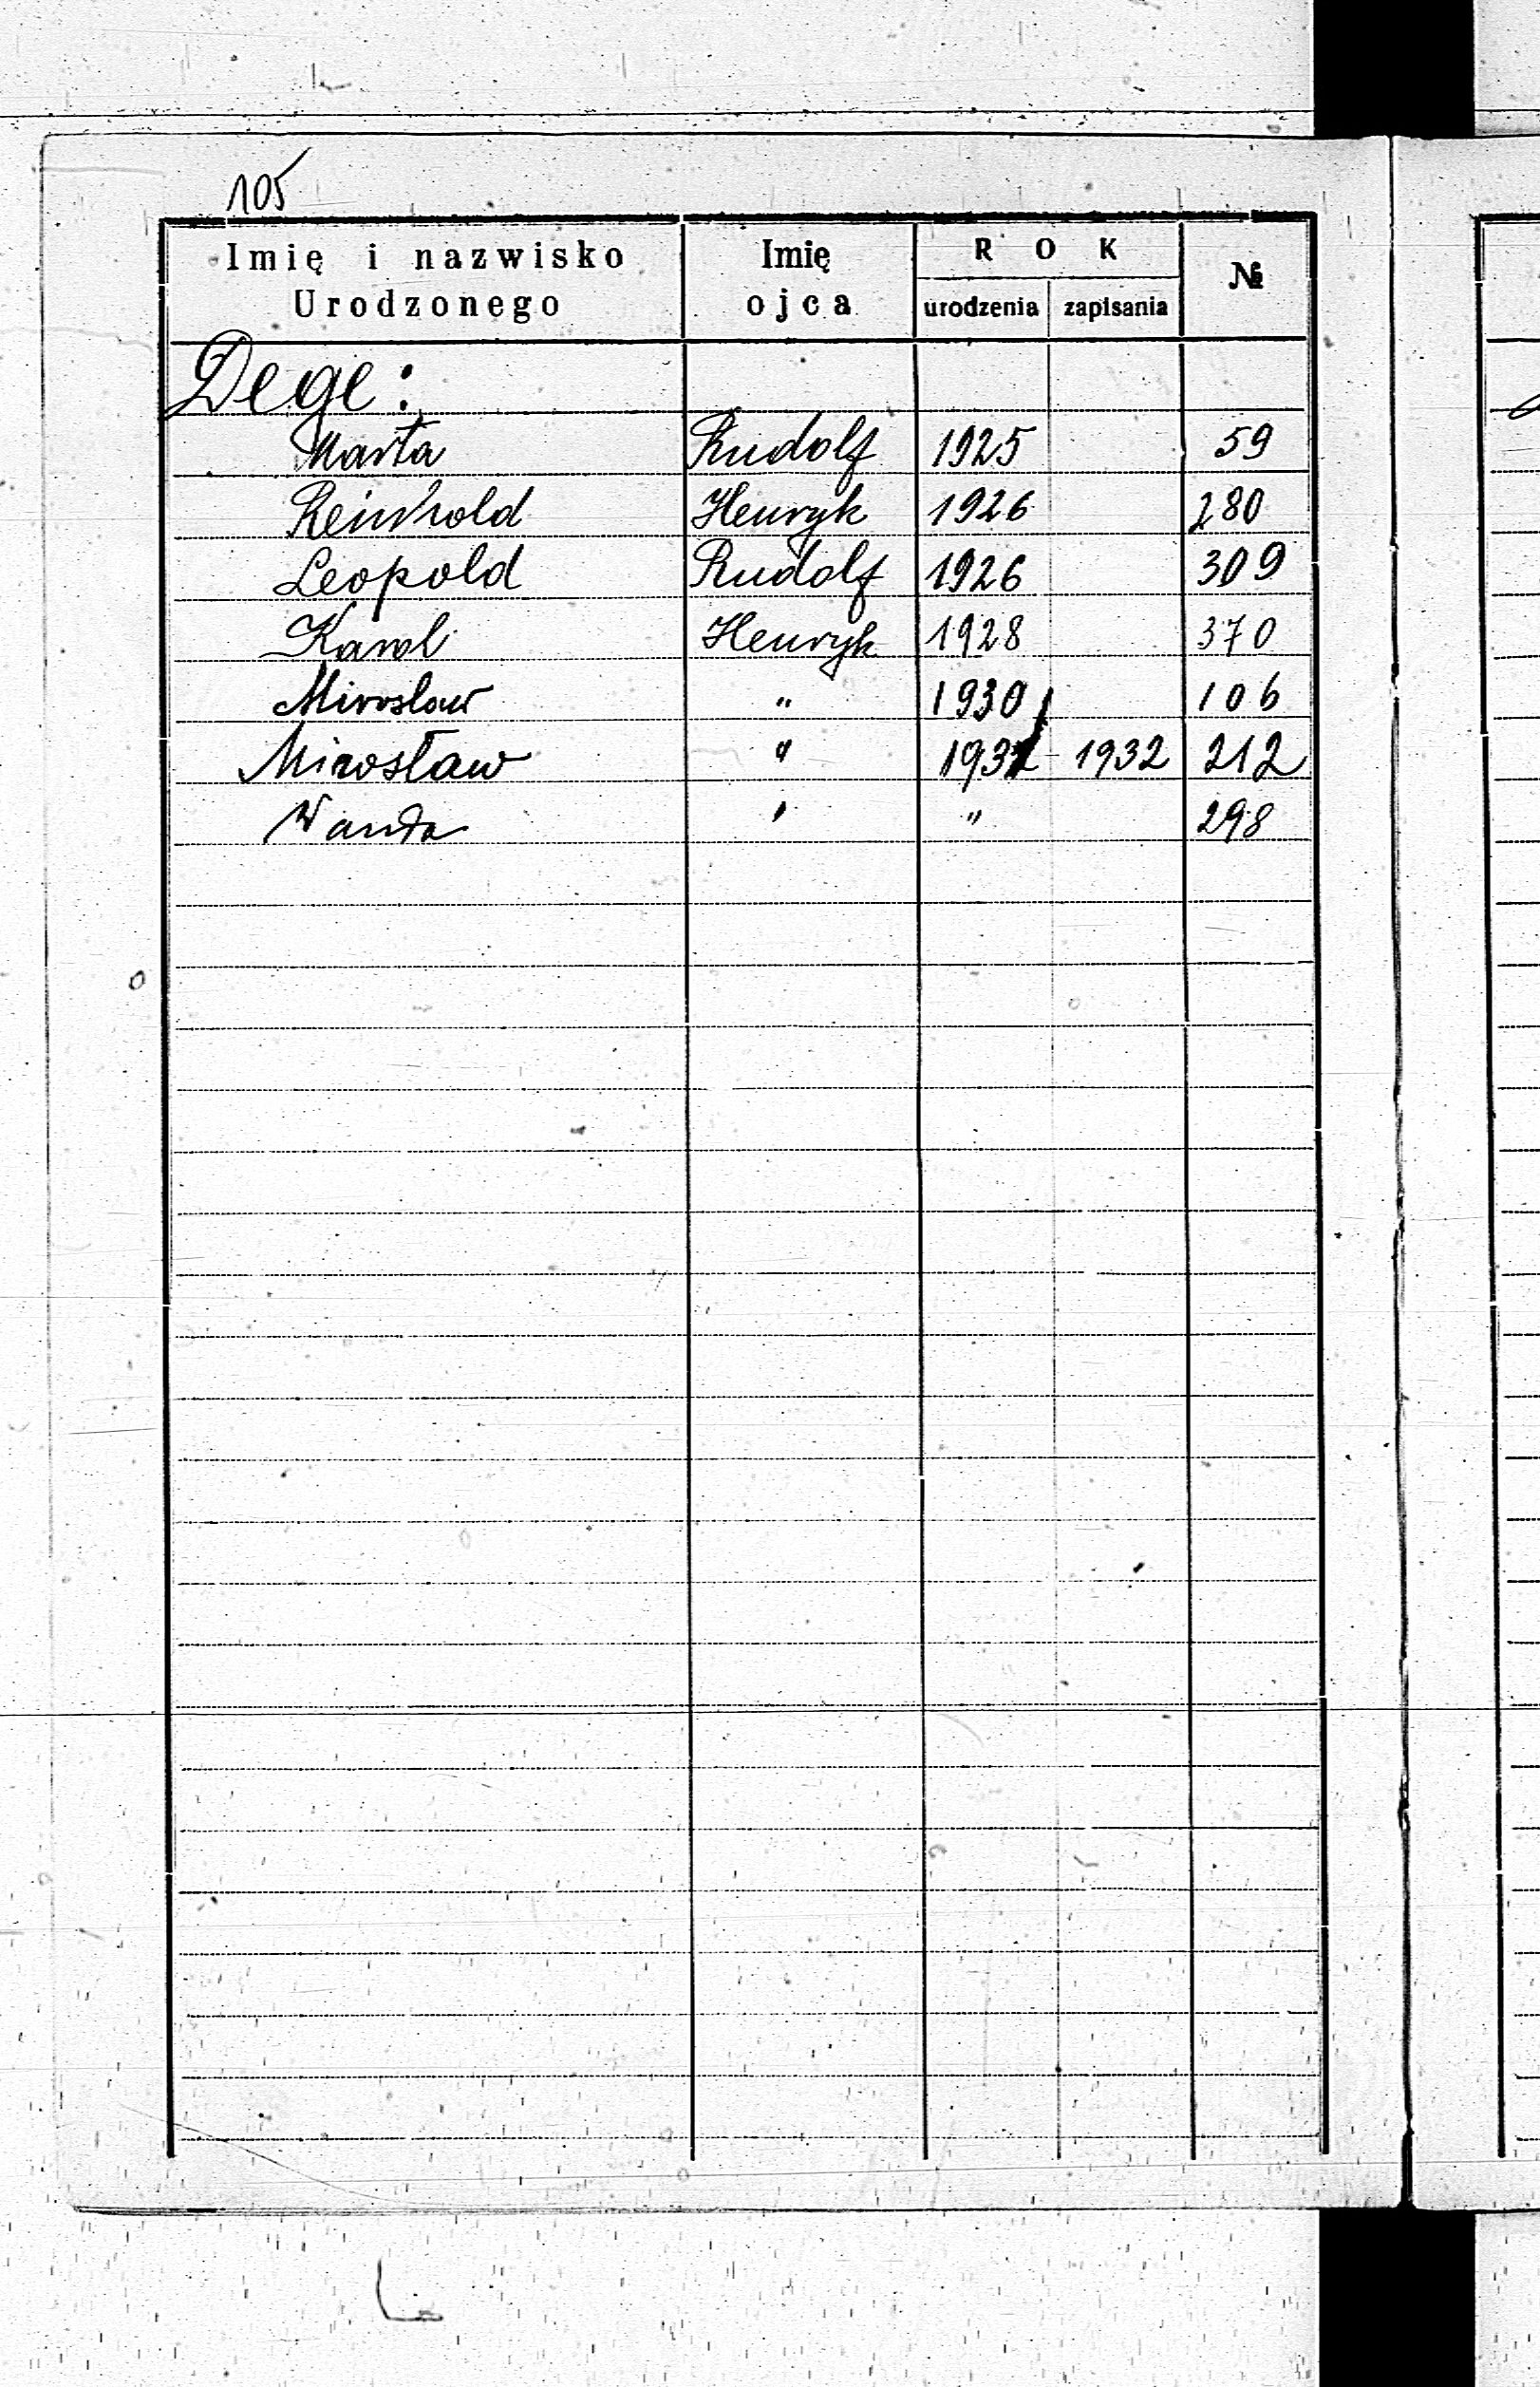 105
Imię i nazwisko Urodzonego Imię ojca ROK urodzenia zapisania №
Dege:
Marta Rudolf 1925 59
Reinhold Henryk 1926 280
Leopold Rudolf 1926 309
Karol Henryk 1928 370
Mirosław " 1930 106
Mirosław " 1932 1932 212
Wanda " " 298